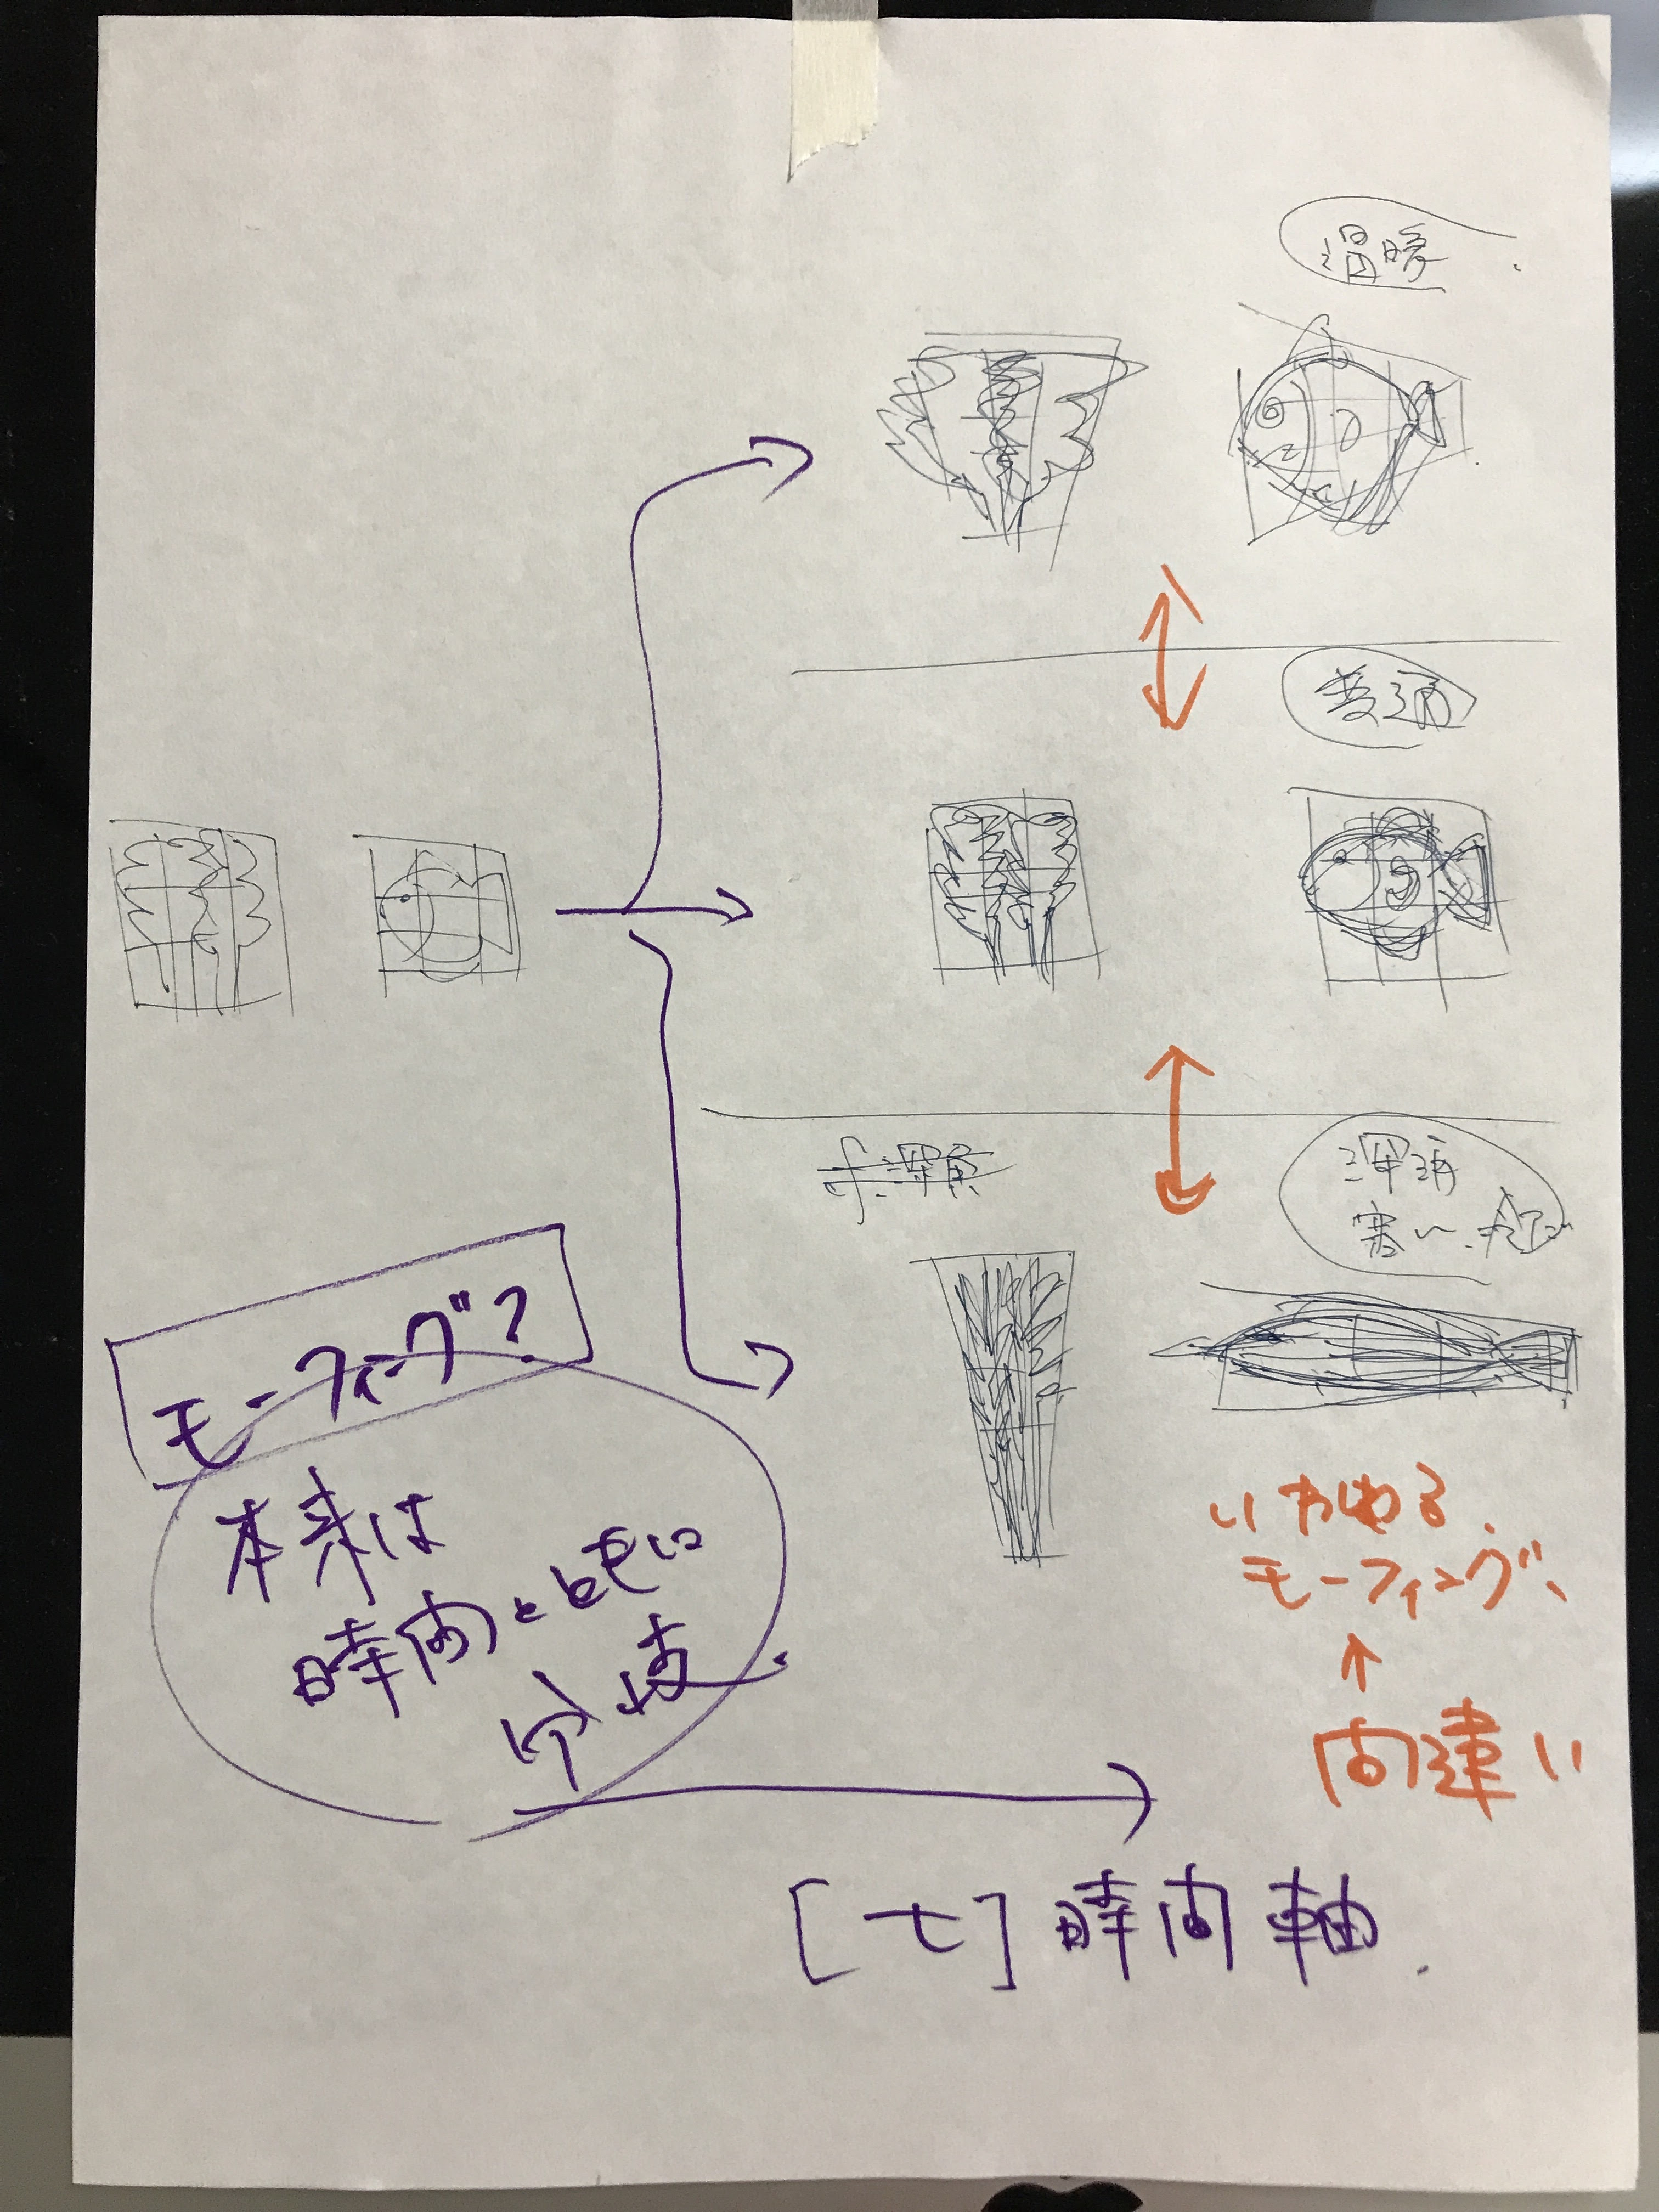 温暖
普通
深海
寒い
モーフィーグ?
本来は
時間とともに
分岐
いわゆる
モーフィング、
↑
間違い
[七]時間軸